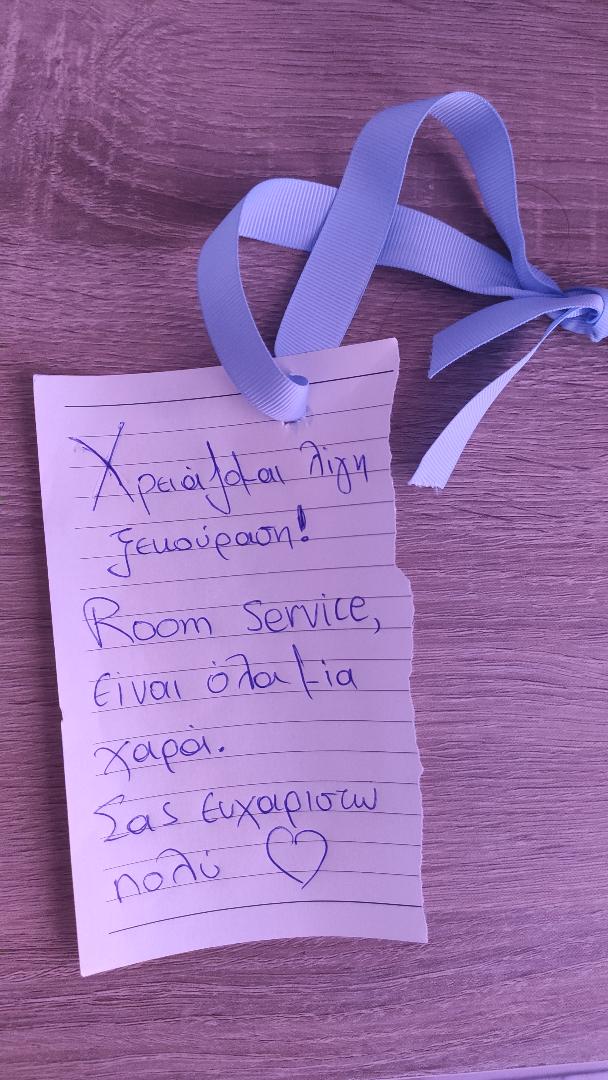 Χρειάζομαι λίγη
ξεκούραση!
Room Service,
είναι όλα μια
χαρά.
Σας ευχαριστώ
πολύ ♡